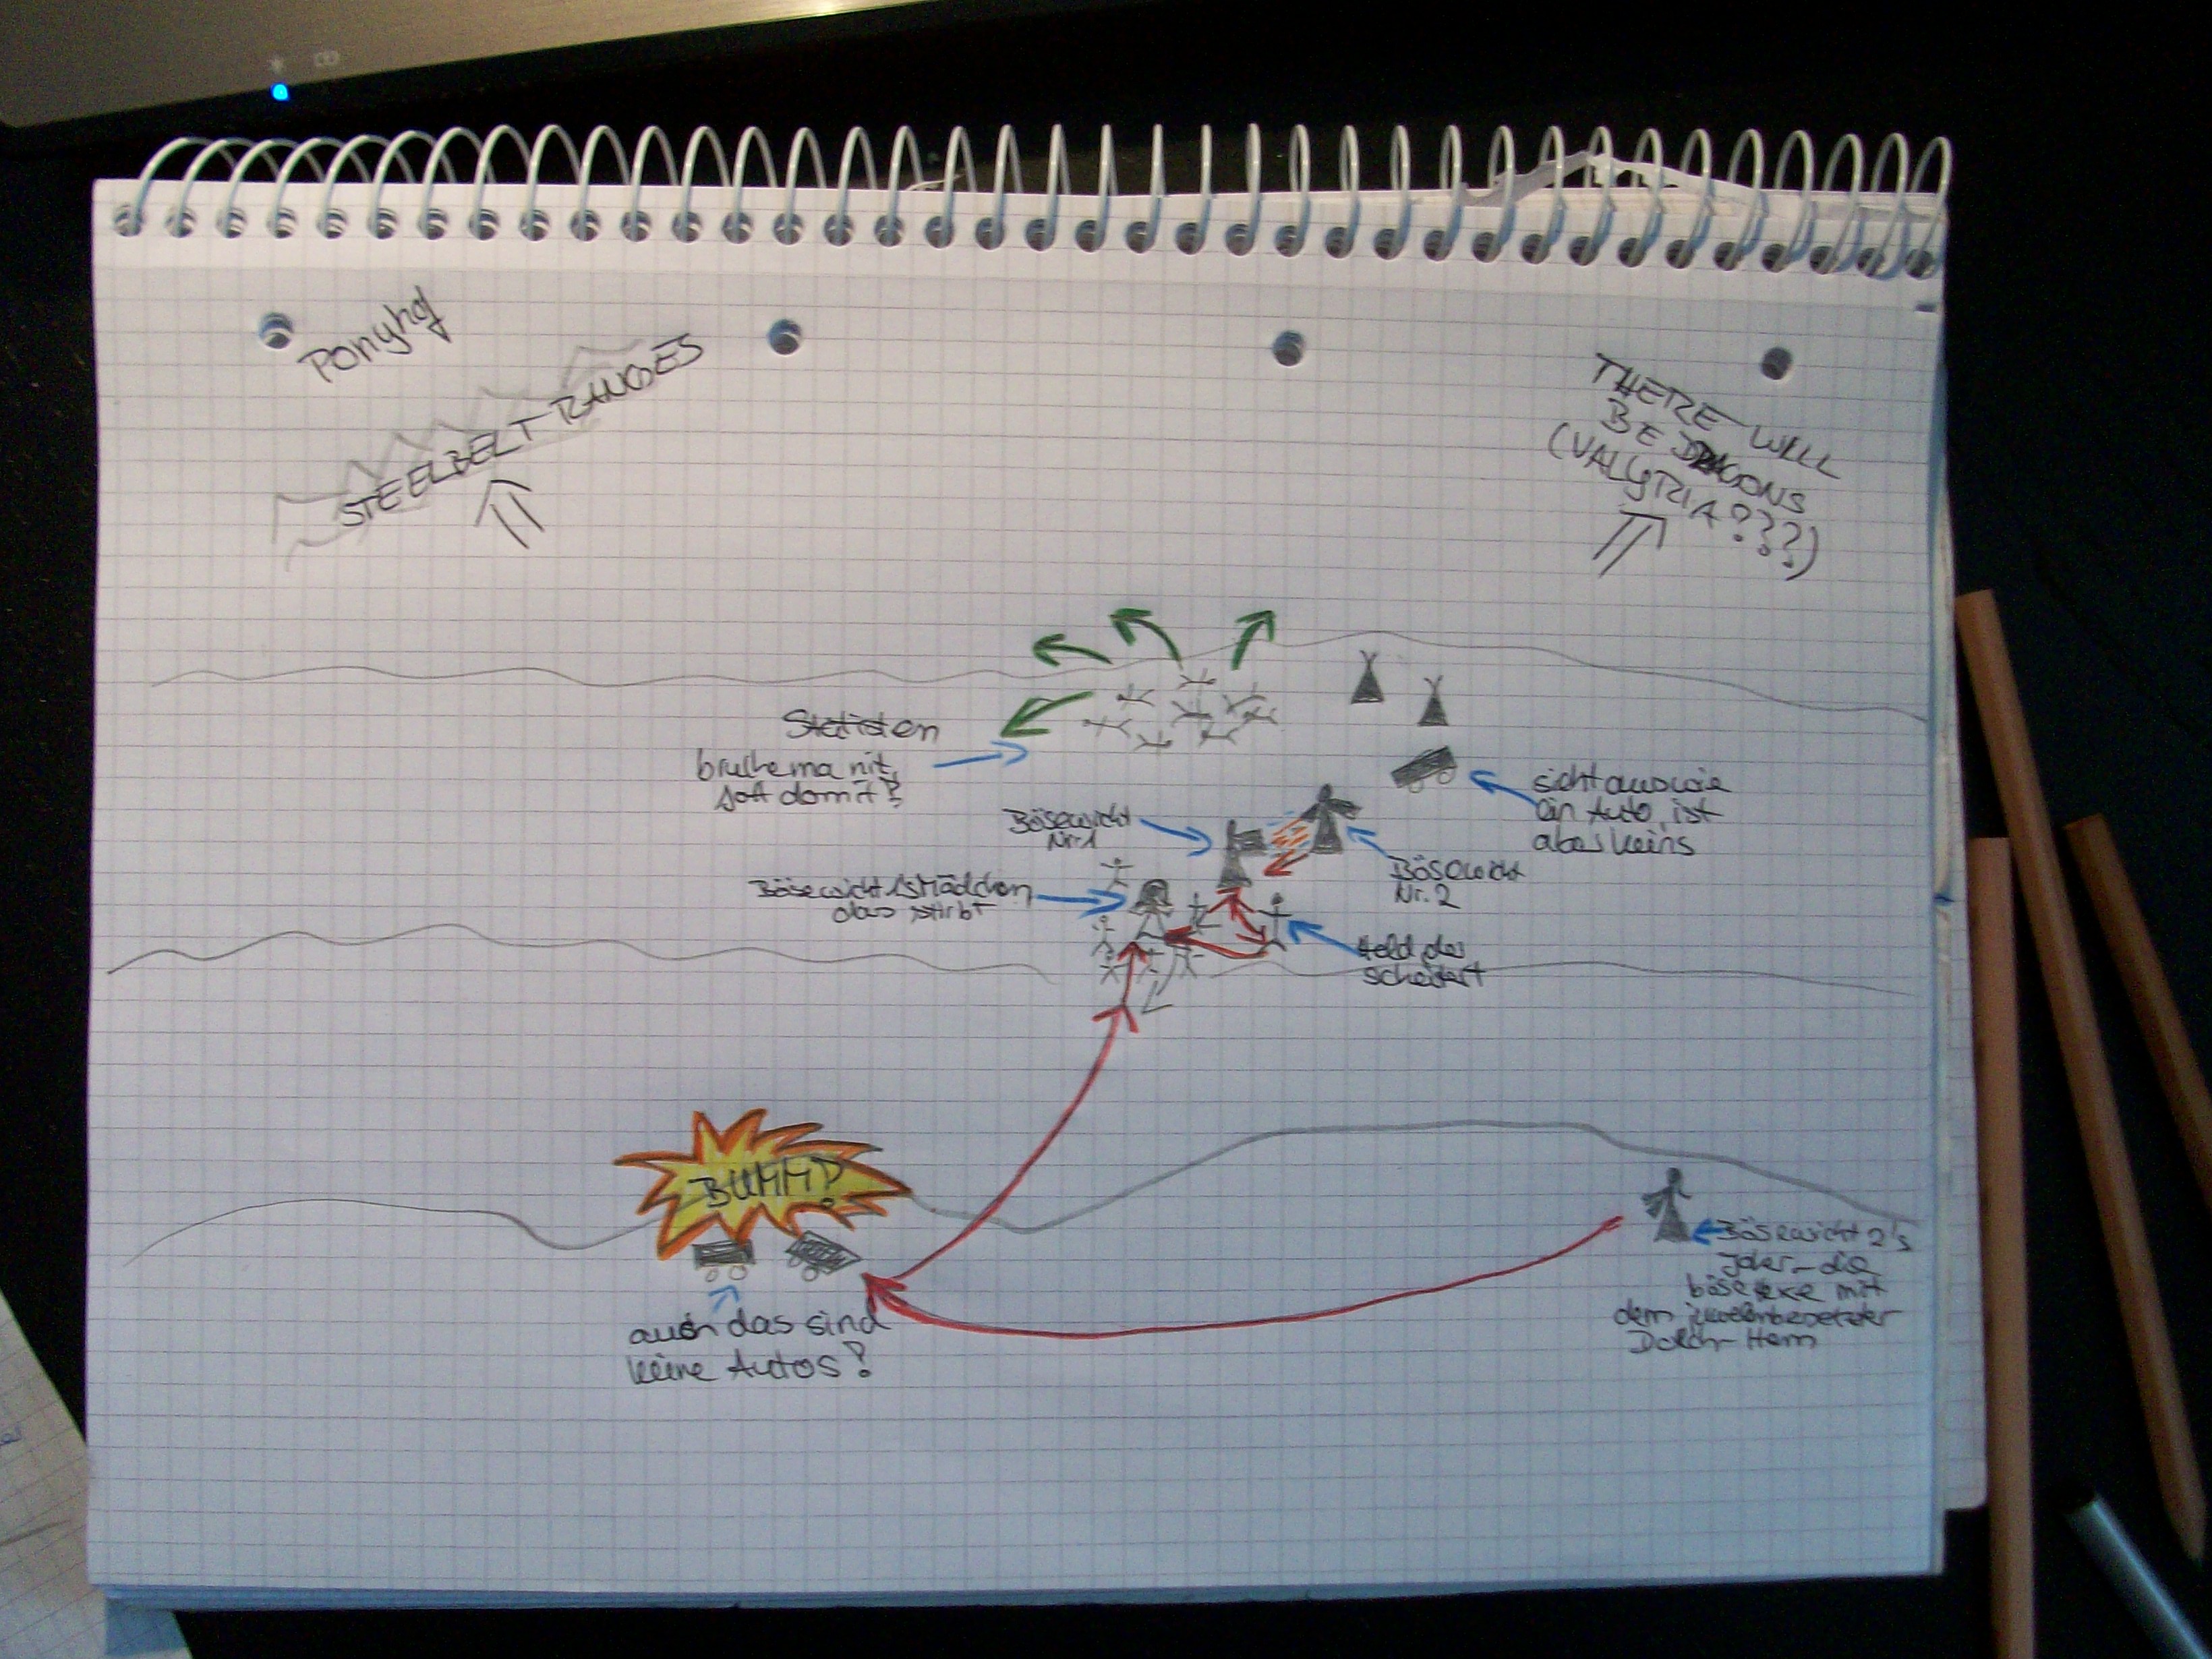 Ponyhof
STEELBELT RANGES
THERE WILL
BE DRAGONS
(VALYRIA???)
Statisten
bruche ma nit,
fott domit?
sieht aus wie
ein Auto, ist
aber keins
Bösewicht
Nr. 1
Bösewicht
Nr. 2
Bösewicht 1s Mädchen
das stirbt
Held der
scheitert
BUMM!
auch das sind
keine Autos!
Bösewicht 2's
Joker – die
böse Hexe mit
dem juwelenbesetzter
Dolch